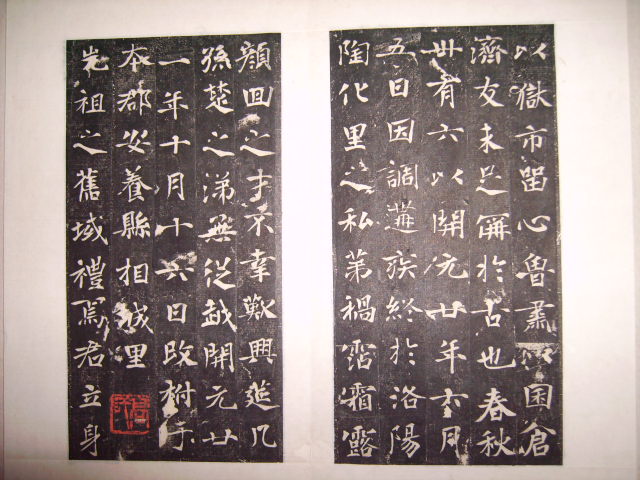 以獄市留心魯肅以囷倉
濟友未足於古也春秋
卅有六以開元廿年六月
五日因調遘疾終於洛陽
陶化里之私第禍霑霜露
顏回之才不幸歎興延几
孫楚之涕無從越開元廿
一年十月十六日改祔于
本郡安養縣相城里
先祖之舊域禮焉君立身